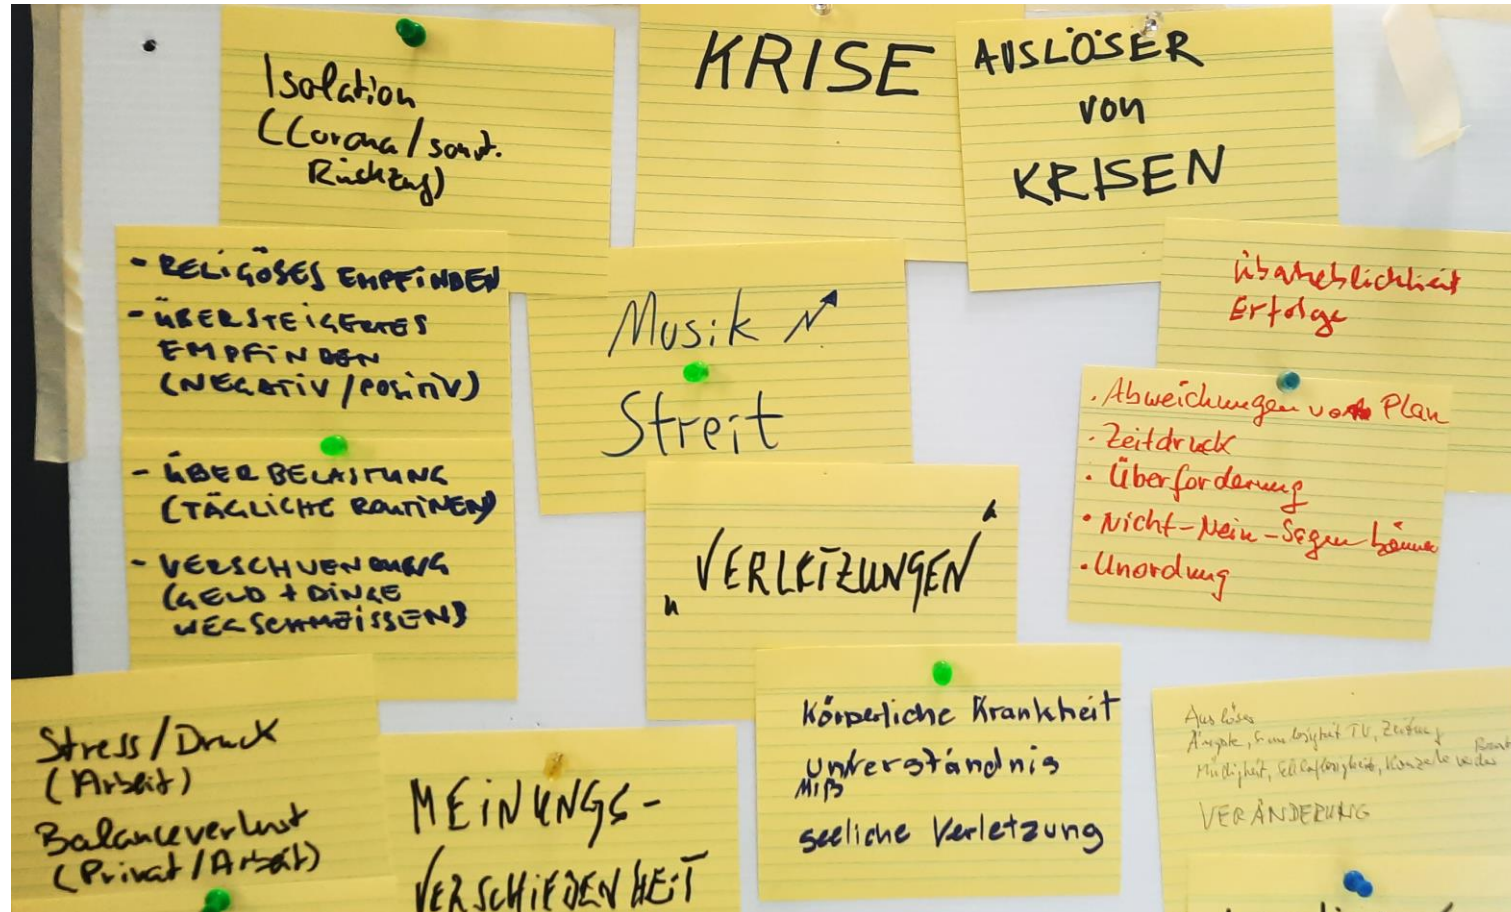 Isolation
(Corona / sonst.
Rückzug)
KRISE
AUSLÖSER
von
KRISEN
- RELIGÖSES EMPFINDEN
- ÜBERSTEIGERTES
EMPFINDEN
(NEGATIV / POSITIV)
- ÜBERBELASTUNG
(TÄGLICHE ROUTINEN)
- VERSCHWENDUNG
(GELD + DINGE
WEGSCHMEISSEN)
Musik
Streit
Überheblichkeit
Erfolge
· Abweichungen vom Plan
· Zeitdruck
· Überforderung
· Nicht-Nein-Sagen können
· Unordnung
„VERLETZUNGEN“
Stress / Druck
(Arbeit)
Balanceverlust
(Privat / Arbeit)
MEINUNGS-
VERSCHIEDENHEIT
Körperliche Krankheit
unverständnis
Miß
seeliche Verletzung
Auslöser
Ängste, TV, Zeitung
Müdigkeit, Schlaflosigkeit,
VERÄNDERUNG